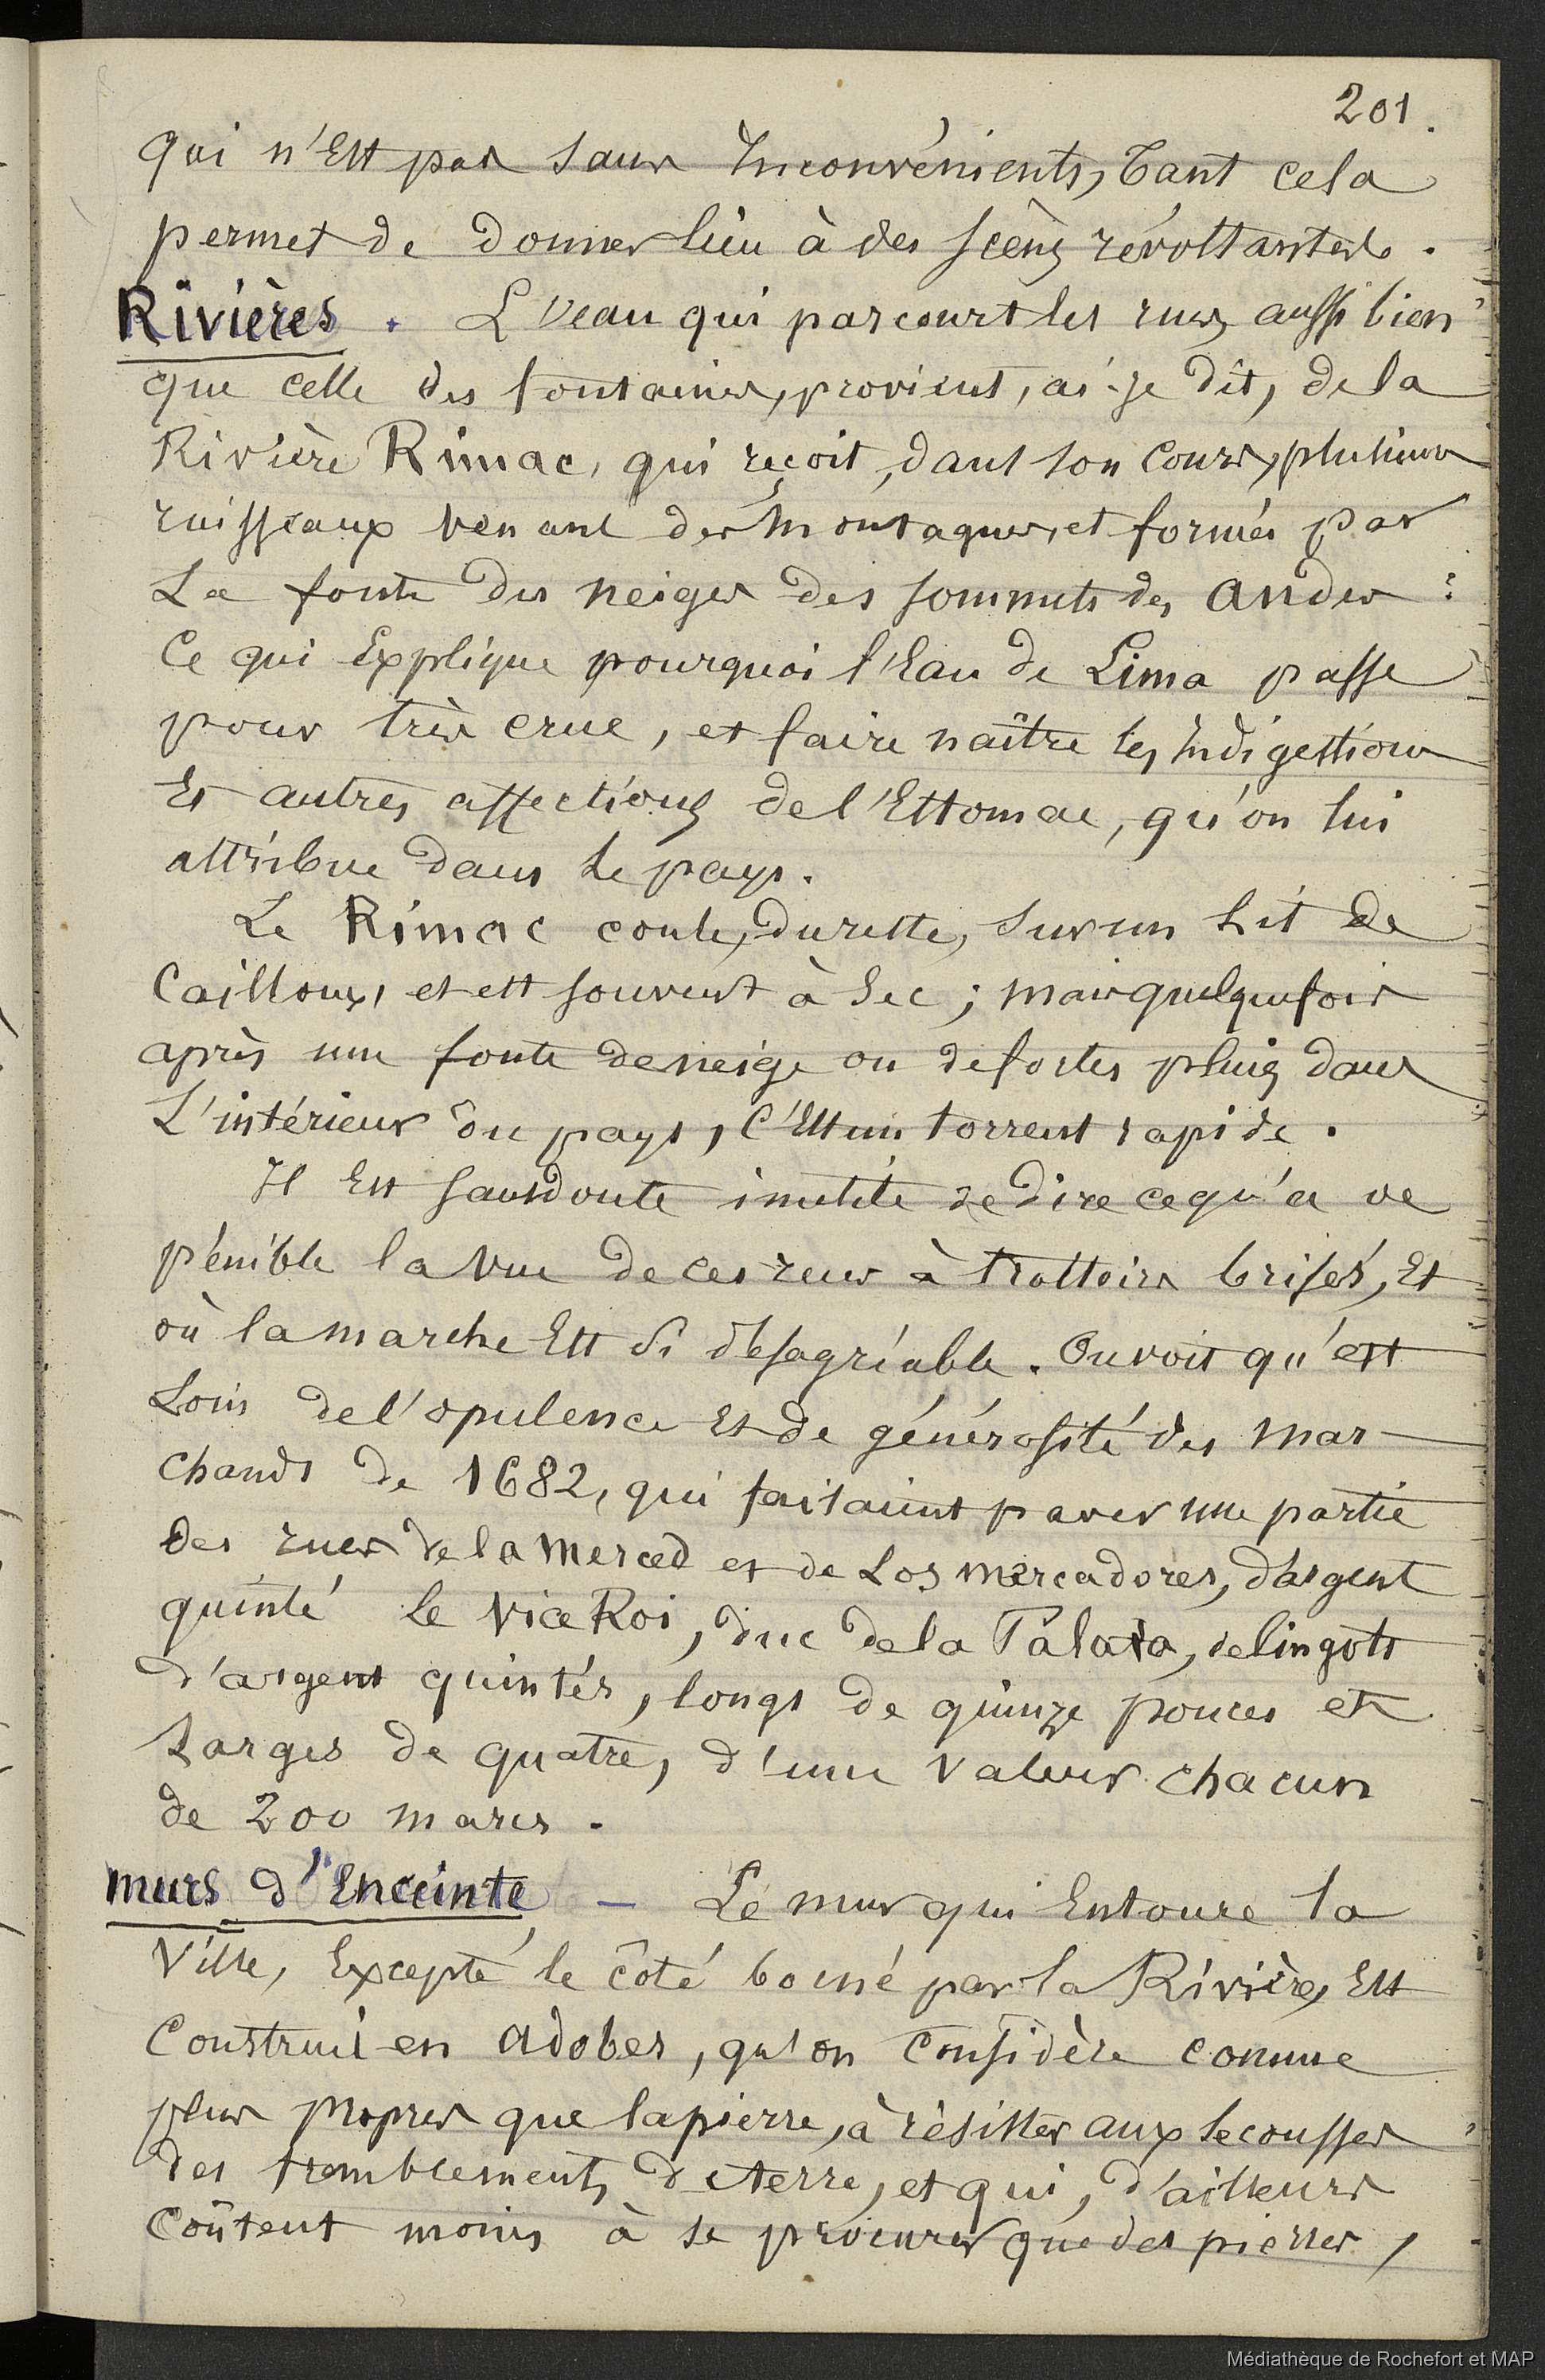 201.
qui n'Est pas sans Inconvénients, Tant cela
permet de donner lieu à des scènes révoltantes.
Rivières. L'eau qui parcourt les rues, aussi bien
que celle des fontaines, provient, ai-je dit, de la
Rivière Rimac, qui reçoit, dans son Cours, plusieurs
ruisseaux venant des Montagnes, et formés par
La fonte des neiges des sommets des Andes :
Ce qui Explique pourquoi l'Eau de Lima passe
pour très crue, et faire naître les Indigestions
Et autres affections de l'Estomac, qu'on lui
attribue dans le pays.
Le Rimac coule, du reste, sur un Lit de
Cailloux, et est souvent à sec ; mais quelquefois
après une fonte de neige ou de fortes pluies dans
L'intérieur du pays, C'Est un torrent rapide.
Il Est sans doute inutile de dire ce qu'a de
pénible la vue de ces rues à trottoirs brisés, Et
où la marche Est si désagréable. On voit qu'est
Loin de l'opulence Et de générosité des Mar-
chands de 1682, qui faisaient paver une partie
des rues de la Merced et de Los Mercadores, d'argent
quinté le Vice Roi, duc de la Palata, de lingots
d'argent quintés, longs de quinze pouces et
Larges de quatre, d'une valeur chacun
de 200 marcs.
Murs d'Enceinte – Le mur qui Entoure la
Ville, Excepté le côté borné par la Rivière, Est
Construit en Adobes, qu'on Considère comme
plus propres que la pierre, à résister aux secousses
des tremblements de terre, et qui, d'ailleurs
Coûtent moins à se procurer que des pierres,
Médiathèque de Rochefort et MAP